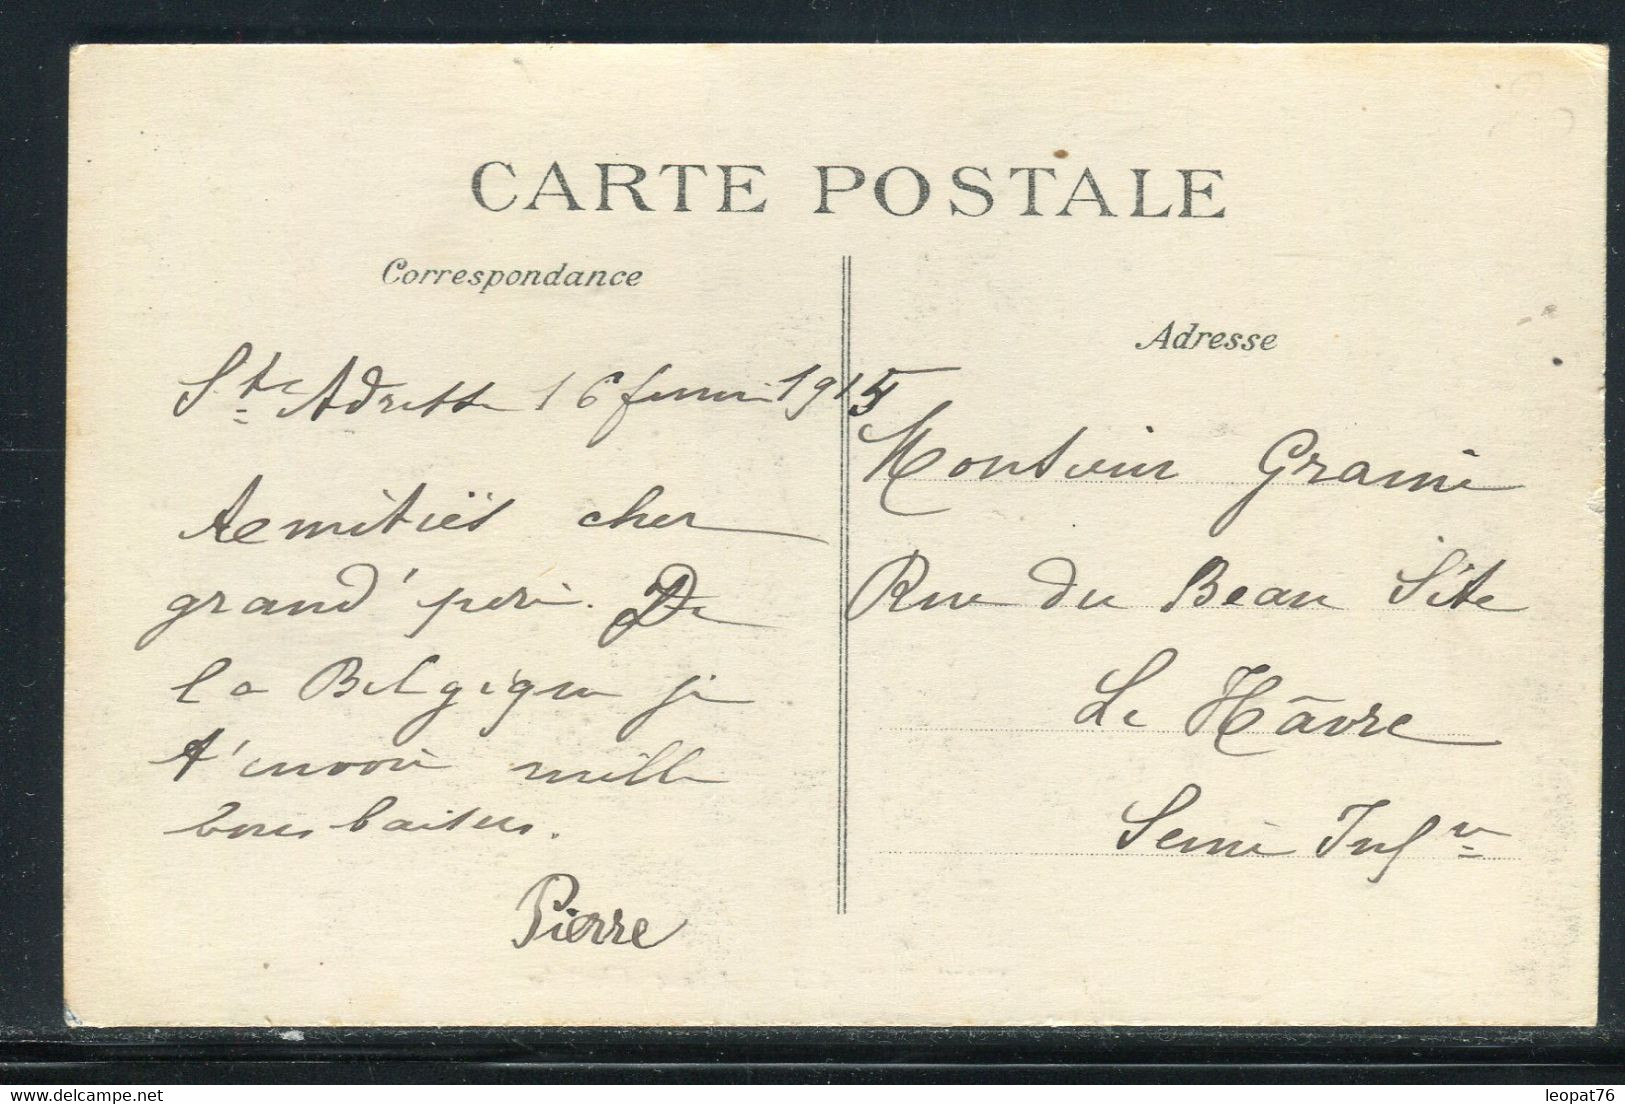 CARTE POSTALE
Correspondance
Ste Adresse 16 fevrier 1915
Aemitiés cher
grand'père. De
la Belgique je
t'envoie mille
bons baisers.
Pierre
Adresse
Monsieur
Rue du Beau Site
Le Hâvre
Seine Infre
leopat76